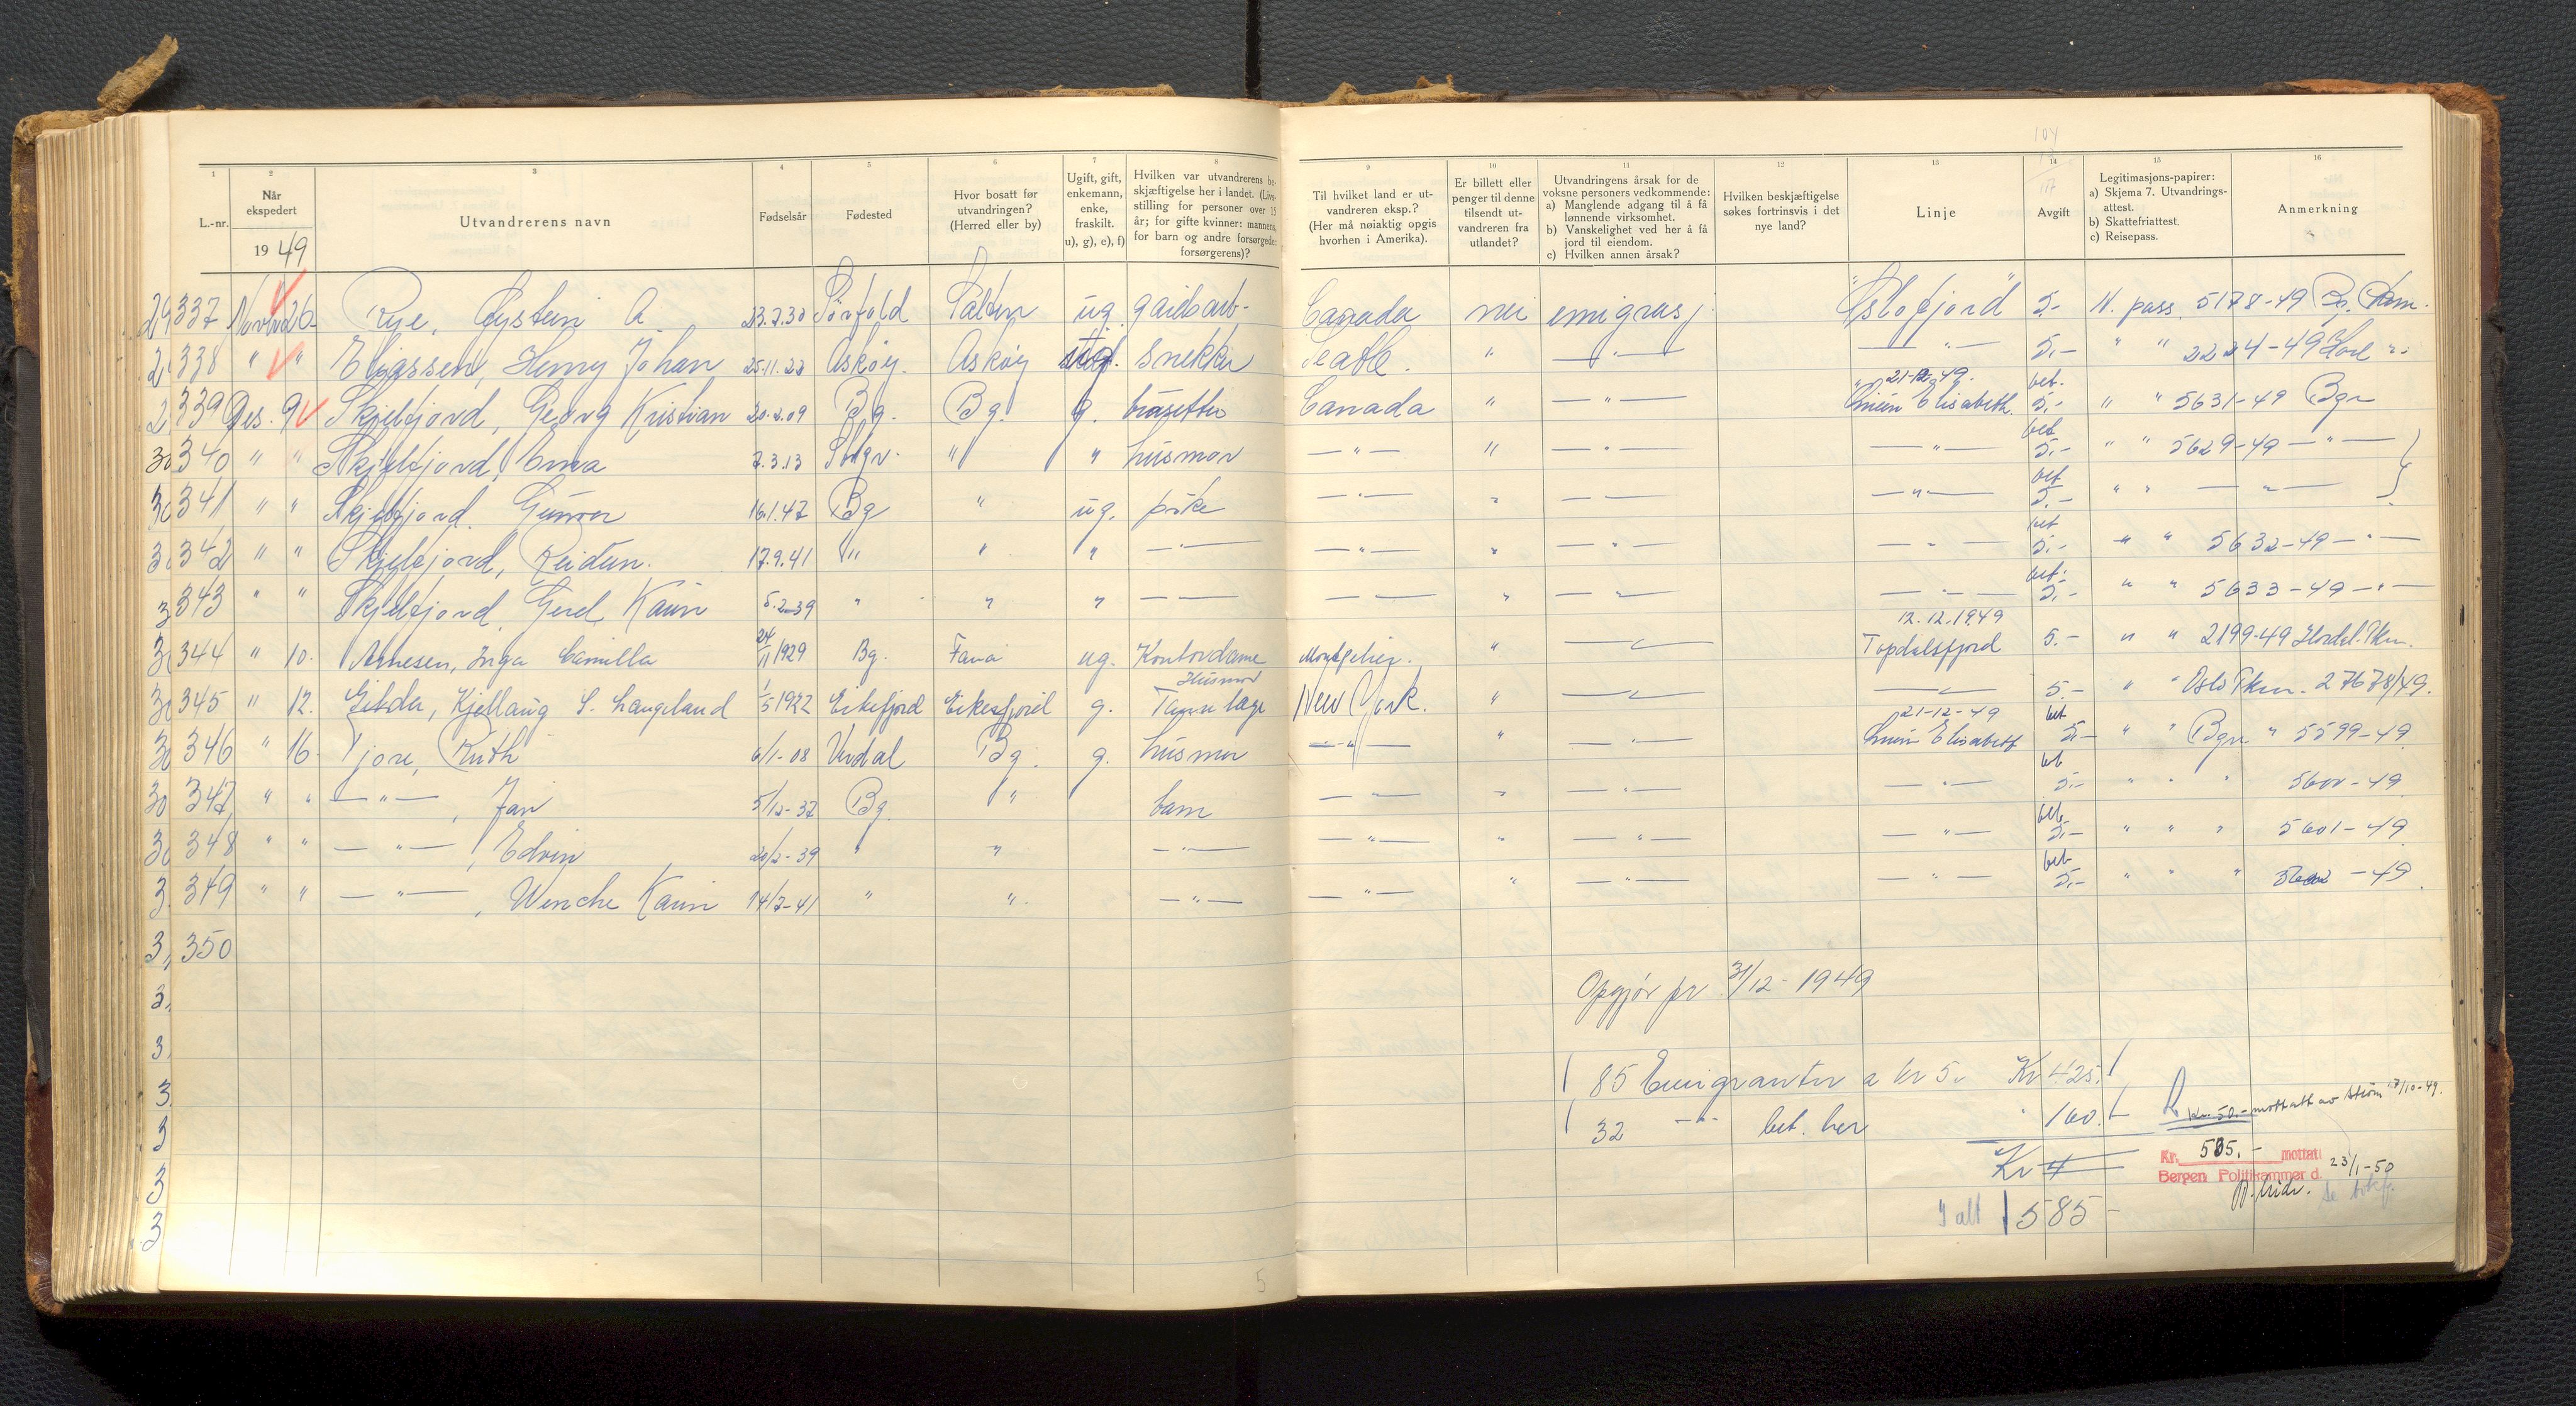 1 2 3 4 5 6 7 8 9 10 11 12 13 14 15 16
104
117
L.-nr.
Når ekspedert
1949
Utvandrerens navn
Fødselsår
Fødested
Hvor bosatt før utvandringen? (Herred eller by)
Ugift, gift, enkemann, enke, fraskilt. u), g), e), f)
Hvilken var utvandrerens be- skjæftigelse her i landet. (Livs- stilling for personer over 15 år; for gifte kvinner: mannens, for barn og andre forsørgede: forsørgerens)?
Til hvilket land er ut- vandreren eksp.? (Her må nøiaktig opgis hvorhen i Amerika).
Er billett eller penger til denne tilsendt ut- vandreren fra utlandet?
Utvandringens årsak for de voksne personers vedkommende: a) Manglende adgang til å få lønnende virksomhet. b) Vanskelighet ved her å få jord til eiendom. c) Hvilken annen årsak?
Hvilken beskjæftigelse søkes fortrinsvis i det nye land?
Linje
Avgift
Legitimasjons-papirer: a) Skjema 7. Utvandrings- attest. b) Skattefriattest. c) Reisepass.
Anmerkning
337 26 Rye, Øystein A. 23.7.30 Sørfold Salten ug. gårdsarb. Canada nei emigrasj. "Oslofjord" 5.- N. pass. 5178-49 Bg.
338 " " Eliassen, Henry Johan 25.11.23 Askøy. Askøy ug. snekker Seatle. " —"— —"— 5.- " " 2224-49 Hord
21-12-49. bet.
339 Des. 9 Skjelfjord, Georg Kristian 20.2.09 Bg. Bg. g. Canada " —"— Elisabeth 5.- " " 5631-49 Bgn
bet
340 " " Skjelfjord, Erna 7.3.13 " " husmor —"— " —"— —"— 5.- " " 5629-49 —"—
bet
341 " " Skjelfjord, Gunvor 16.1.47 Bg " ug. pike —"— " —"— —"— 5.- " " —"—
bet
342 " " Skjelfjord, Reidun. 17.9.41 " " " —"— —"— " —"— —"— 5.- " " 5632-49 —"—
bet.
343 " " Skjelfjord, Gerd Karin 5.2-39 " " " —"— —"— " —"— —"— 5.- " " 5633-49 —"—
12.12.1949
344 " 10. Arnesen, Inga Camilla 24/11 1929 Bg. Fana ug. Kontordame " —"— Topdalsfjord 5.- " " 2199-49 Hordal. Pkm.
Husmor
345 " 12. Kjellaug S. Langeland 1/5 1922 Eikefjord Eikefjord g. New York. " —"— —"— 5.- " " Oslo Pkm. 27678/49.
21-12-49 bet
346 " 16 Tjore, Ruth 6/1-08 Verdal Bg. g. husmor —"— " —"— Elisabeth 5.- " " Bgn " 5599-49
bet
347 " " —"—, Jan 5/12-37 Bg. " barn —"— " —"— —"— 5.- " " " 5600-49
bet
348 " " —"—, Edvin 20/2-39 " " —"— —"— " —"— —"— 5.- " " " 5601-49
bet
349 " " —"—, Wenche Karin 14/7-41 " " —"— —"— " —"— —"— 5.- " " " 5602-49
350
Opgjør pr 31/12-1949
85 Emigranter a kr 5.- Kr 425.-
32 —"— bet. her " 160.-
Kr 4
I alt 585-
kr. 50.- mottatt av Strøm 17/10-49.
Kr. 585.- mottatt
Bergen Politikammer d. 23/1-50
5